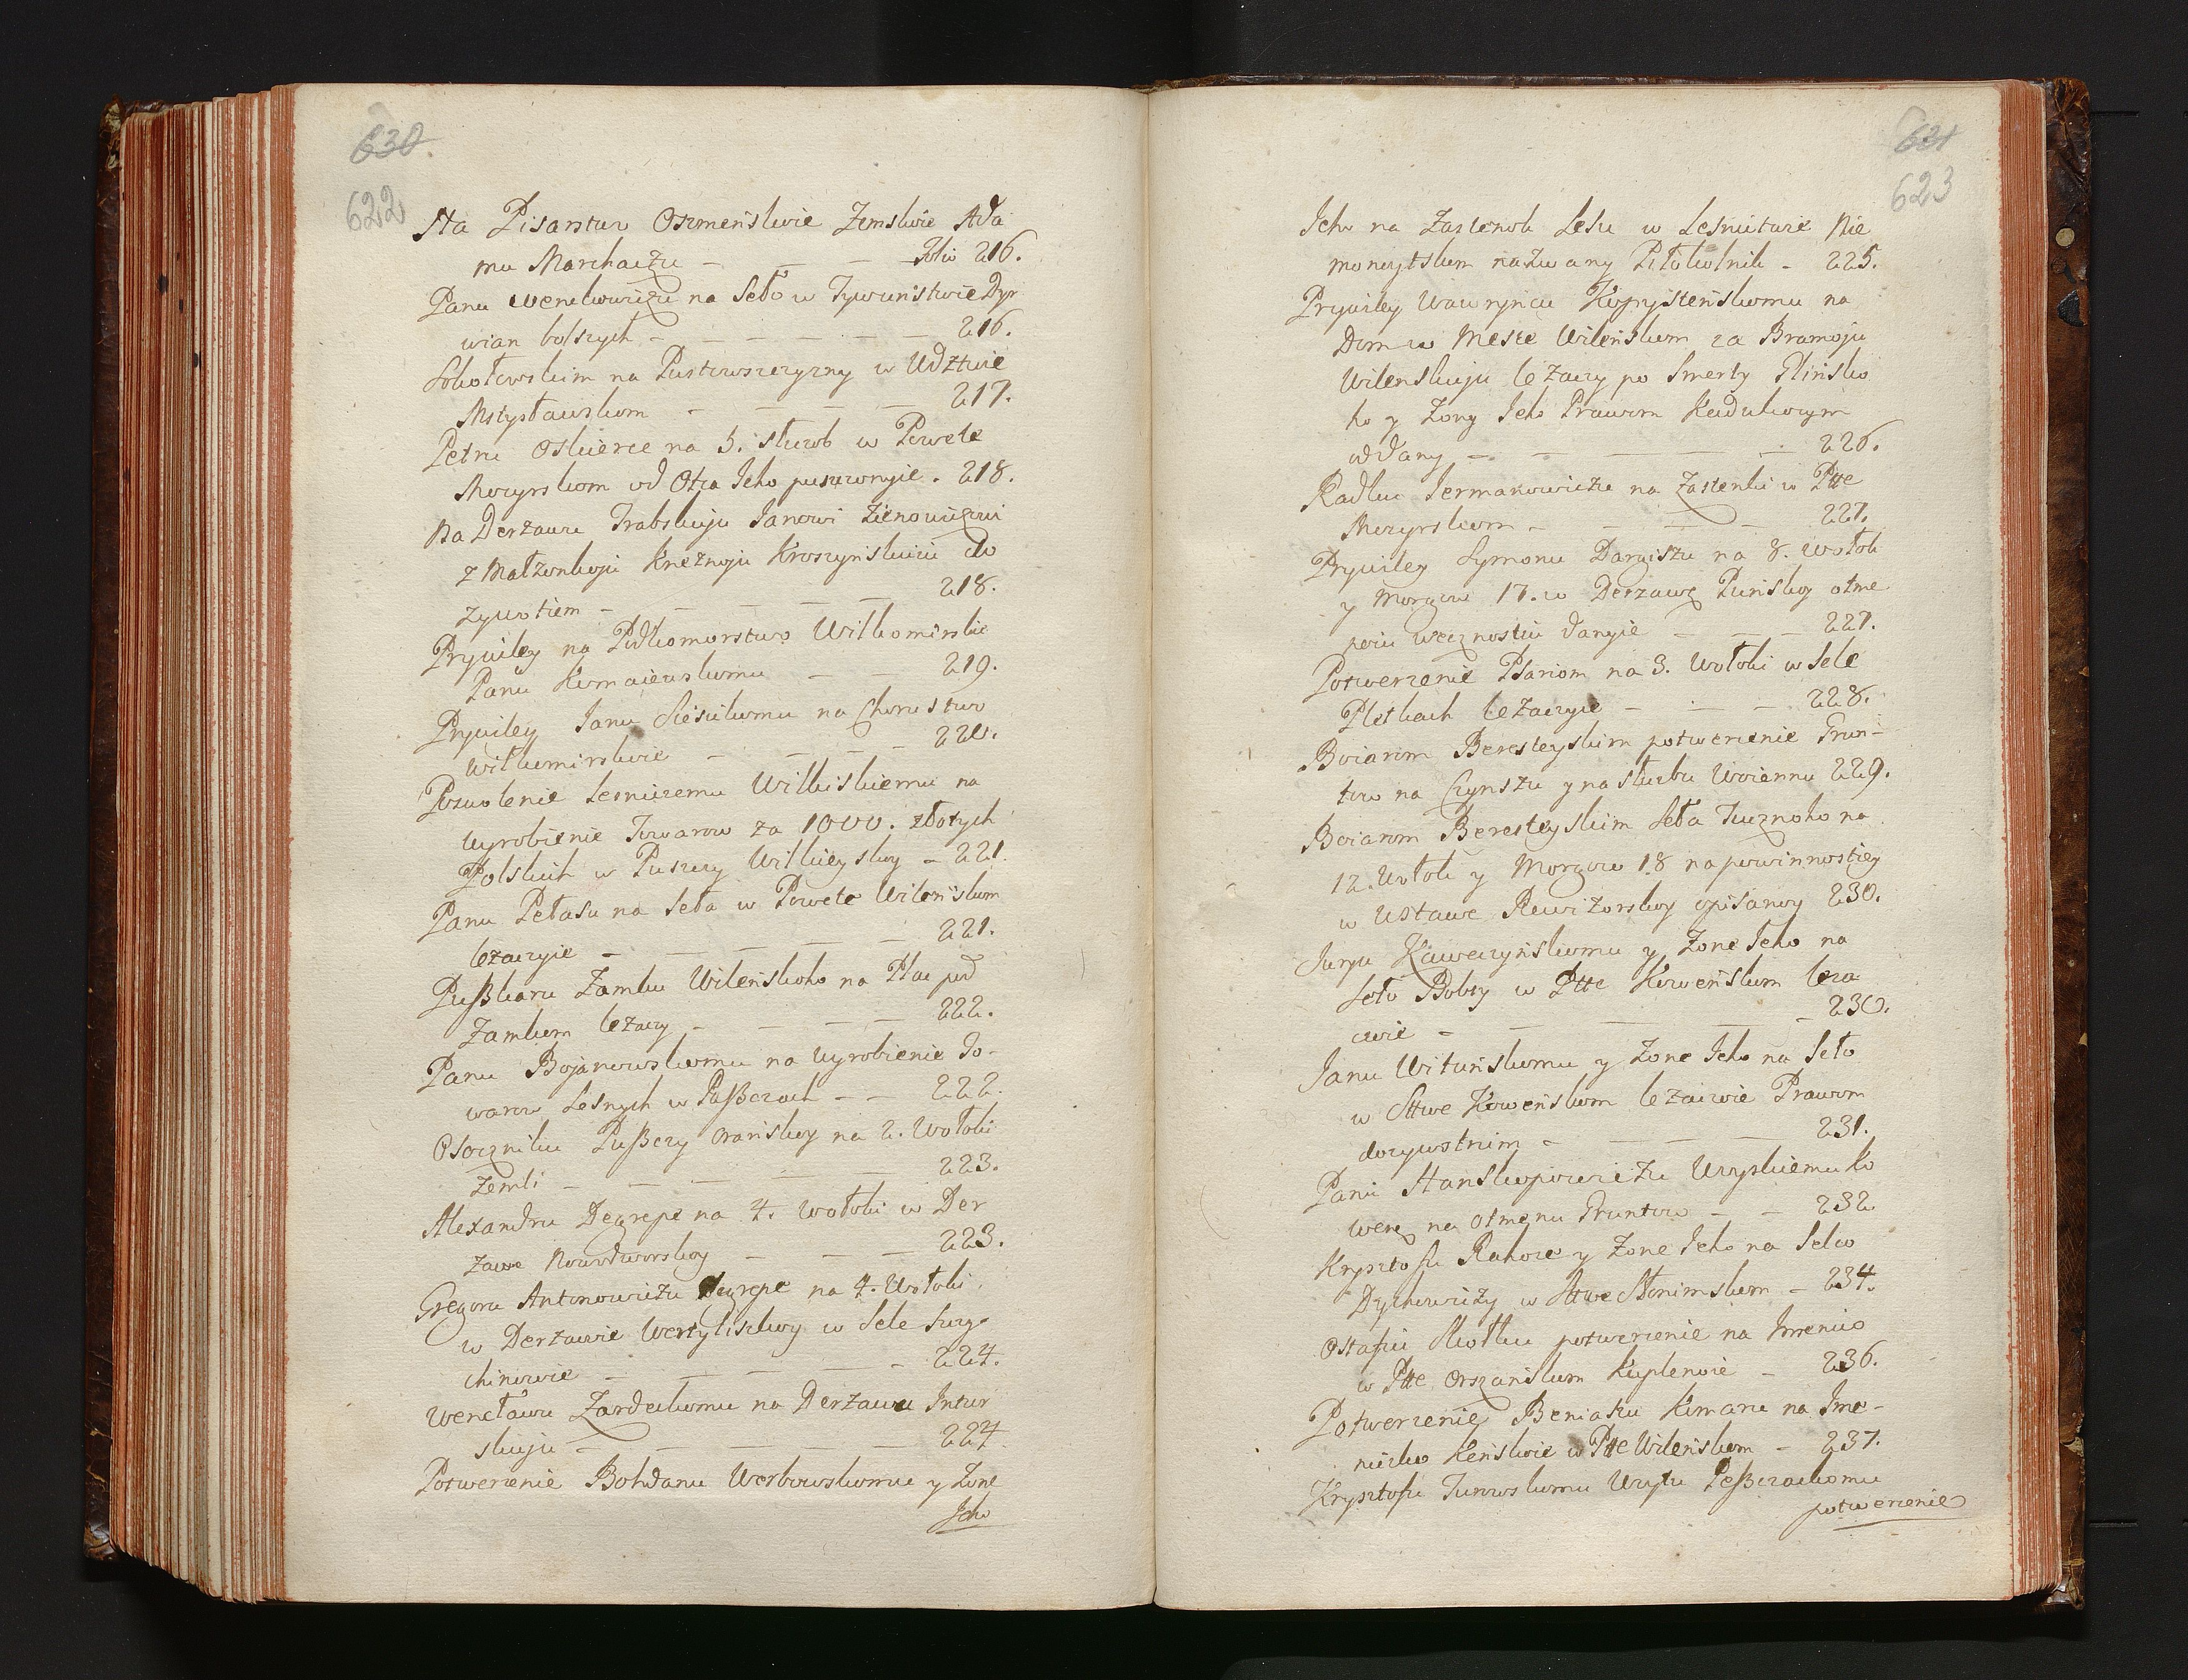 630
622
Na Pisarstwo Oszmeńskoie Zemskoie Ada
mu Marchaczu – – – Folio 216.
Panu Wenckowiczu na Seło w Tywuństwie Dyr
wian bolszych – – – – – – 216.
Sokołowskim na Pustowszczyzny w Wdztwie
Mstysławskom – – – – 217.
Petru Oskierce na 5. służob w Powete
Mozyrskom od Otca Jeho puszczonyie . 218.
Na Derżawu Trabskuju Janowi Zienowiczowi
z Małżonkoju Kneżnoju Kroszynskoiu do
żywotiem – – – – – 218.
Prywiley na Podkomorstwo Wiłkomirskie
Panu Komaiewskomu – – 219.
Prywiley Janu Siesickomu na Chorustwo
Wiłkomirskoie – – – – 220.
Pozwolenie Lesniczemu Wilkiskiemu na
wyrobienie Towarow za 1000. złotych
Polskich w Puszczy Wilkieyskoy – 221.
Panu Pełasu na Seła w Powete Wileńskom
leżaczyie – – – – – 221.
Pußkaru Zamku Wileńskoho na Plac pod
Zamkom leżaczy – – – – 222.
Panu Bojanowskomu na wyrobienie To-
warow Lesnych w Pußczach – – 222.
Osoczniku Pußczy Orańskoy na 2. Wołoki
Zemli – – – – – 223.
Alexandru Degrepe na 4. Wołoki w Der
żawe Nowodworskoy – – – 223.
Gregoru Antonowiczu Degrepe na 4. Wołoki
w Derżawie Wertyliszkoy w Sele Surg-
chinowie – – – – – 224.
Wencławu Zardeckomu na Derżawu Intur
skuju – – – – – 224.
Potwerżenie Bohdanu Werbowskomu y Żone
Jeho
631
623
Jeho na Zastenok Lesu w Lesnictwie Nie
monoytskom nazwany Pełokolnik – 225.
Prywiley Wawryncu Kopysteńskomu na
Dom w Meste Wileńskom za Bramoju
Wilenskoju leżaczy po Smerty Glińsko
ho y Żony Jeho Prawom Kadukowym
oddany – – – – – 226.
Radku Jermanowiczu na Zastenki w Ptte
Mozyrskom – – – – 227.
Prywiley Symonu Dargiszu na 8. Wołok
y Morgow 17. w Derżawe Puńskoy otme
noiu wecznostiu danyie – – – 227.
Potwerżenie Psariom na 3. Wołoki w Sele
Pletkach leżaczyie – – – 228.
Boiarom Beresteyskim potwerżenie Grun-
tow na Czynszu y na służbu Woiennu 229.
Boiarom Beresteyskim Seła Tucznoho na
12. Wołok y Morgow 18 na powinnostiey
w Ustawe Rewizorskoy opisanoy 230.
Jurju Kaweczyńskomu y Żone Jeho na
Seło Bobty w Ptte Kowenskom leża
czoie – – – – – 230.
Janu Wituńskomu y Żone Jeho na Seło
w Sttwe Kowenskom leżaczoie Prawom
dożywotnim – – – – 231.
Panu Stanskopowiczu Uryskiemu Ko
werę na otmenu Gruntow – – 232
Krysztofu Rahoze y Żone Jeho na Selco
Dychowiczy w Sttwe Słonimskom – 234.
Ostafiu Słotku potwerżenie na Imenio
w Ptte Orszańskom Kuplenoie – 236.
Potwerżenie Beniaszu Komaru na Ime-
niczko Keńskoie w Ptte Wileńskom – 237.
Krysztofu Turowskomu Urytu Peßczackomu
potwerżenie